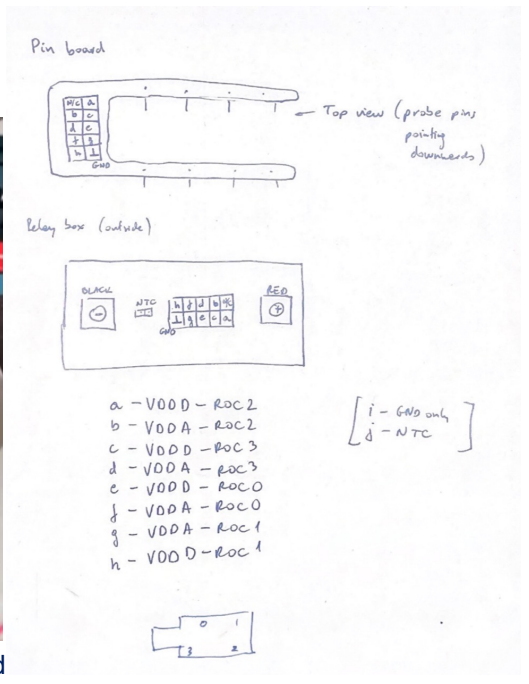 Pin board
N/C a
b c
d e
f g
h ⏚
GND
Top view (probe pins
pointing
downwards)
Relay box (outside)
BLACK
NTC
RED
-
h f d b N/C
+
⏚ g e c a
GND
a - VDDD - ROC2
b - VDDA - ROC2
c - VDDD - ROC3
d - VDDA - ROC3
e - VDDD - ROC0
f - VDDA - ROC0
g - VDDA - ROC1
h - VDDD - ROC1
i - GND only
j - NTC
0 1
3 2
d